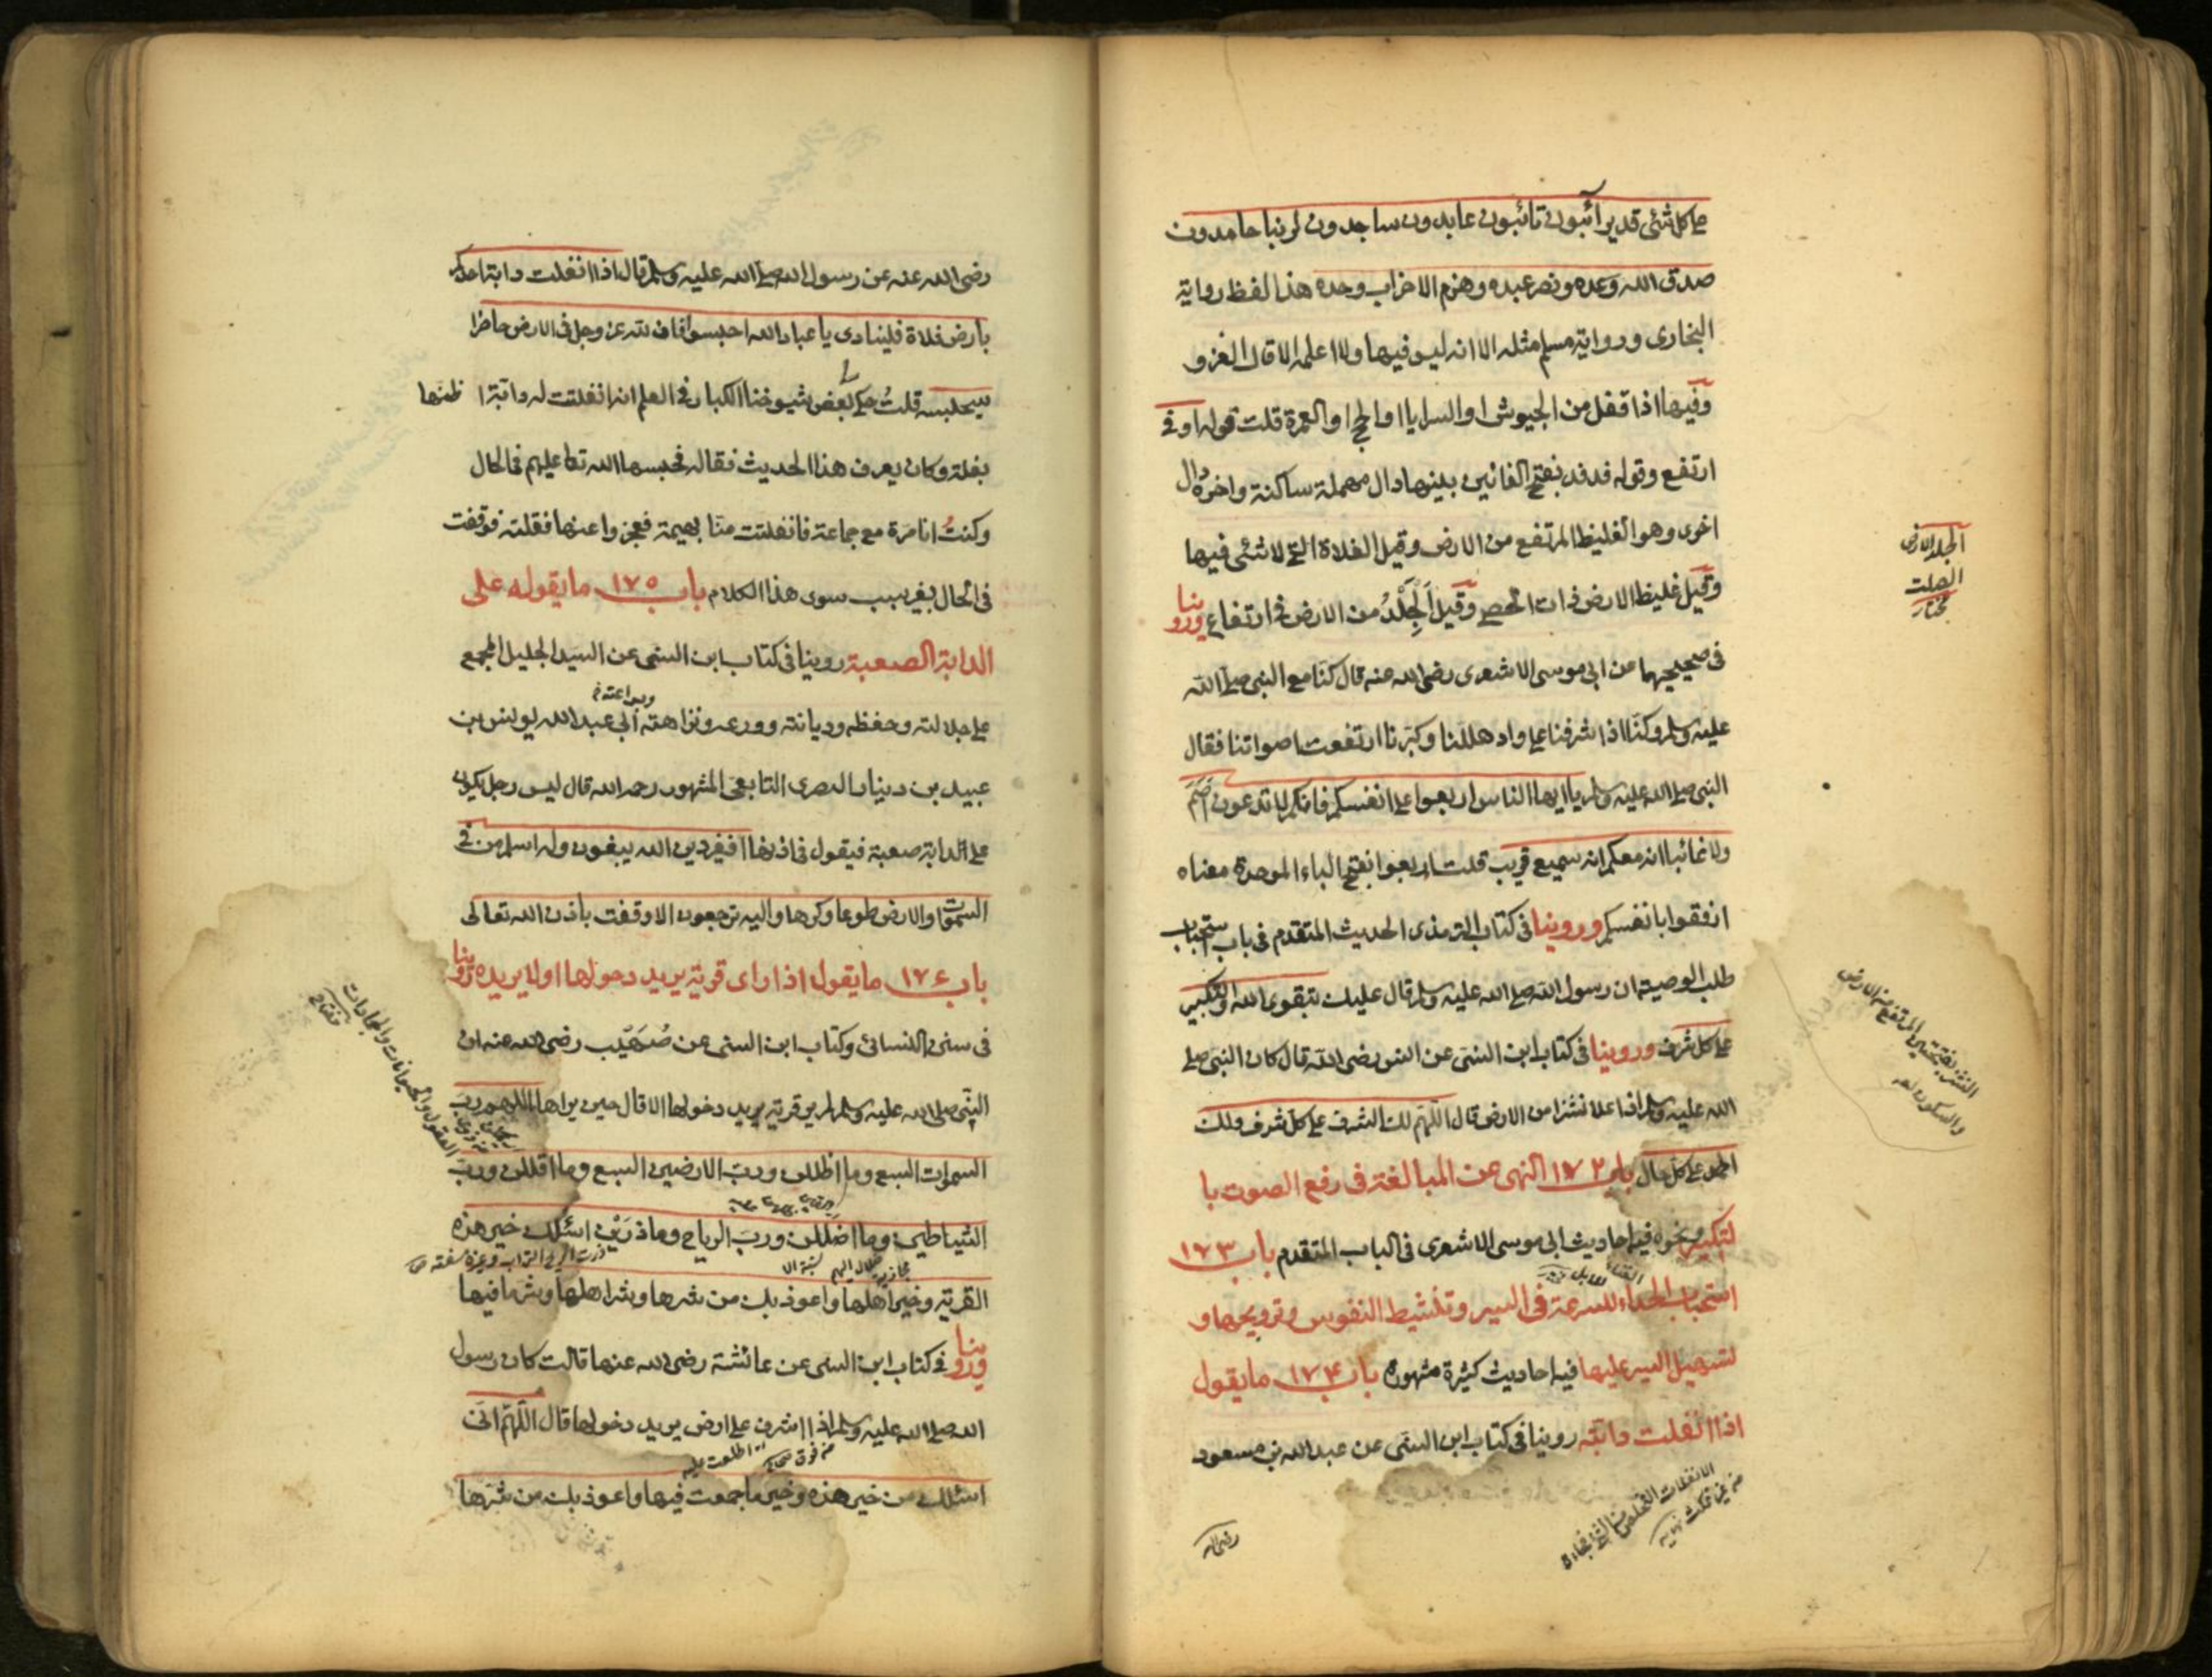 على كل شئ قدير آئبون تائبون عابدون ساجدون لربنا حامدون
صدق الله وعده ونصر عبده وهزم الاحزاب وحده هذا لفظ رواية
البخارى ورواية مسلم مثله الا انه ليس فيها ولا اعلمه الا قال الغزو
وفيها اذا قفل من الجيوش او السرايا او الحج او العمرة قلت قوله اوفى
ارتفع وقوله فدفد بفتح الفائين بينهما دال مهملة ساكنة واخره دال
اخرى وهو الغليظ المرتفع من الارض وقيل الفلاة التى لا شئى فيها
وقيل غليظ الارض ذات الحصى وقيل الجلد من الارض فى ارتفاع وروينا
فى صحيحيهما عن ابى موسى الاشعرى رضى الله عنه قال كنا مع النبى صلى الله
عليه وسلم وكنا اذا اشرفنا على واد هللنا وكبرنا ارتفعت اصواتنا فقال
النبى صلى الله عليه وسلم يا ايها الناس اربعوا على انفسكم فانكم لا تدعون اصم
ولا غائبا انه معكم انه سميع قريب قلت اربعوا بفتح الباء الموحدة معناه
ارفقوا بانفسكم وروينا فى كتاب الترمذى الحديث المتقدم فى باب استحباب
طلب الوصية ان رسول الله صلى الله عليه وسلم قال عليك بتقوى الله والتكبير
على كل شرف وروينا فى كتاب ابن السنى عن انس رضى الله قال كان النبى صلى
الله عليه وسلم اذا علا نشزا من الارض قال اللهم لك الشرف على كل شرف ولك
الحمد على كل حال باب ١٧٢ النهى عن المبالغة فى رفع الصوت با
لتكبير ونحوه فيه احاديث ابى موسى الاشعرى فى الباب المتقدم باب ١٧٣
استحباب الحداء للسرعة فى السير وتنشيط النفوس وترويحها و
لتسهيل السير عليها فيه احاديث كثيرة مشهورة باب ١٧٤ ما يقول
اذا انفلتت دابته روينا فى كتاب ابن السنى عن عبد الله بن مسعود
الجلد الارض
الصلبة
مختار
رضى الله
رضى الله عنه عن رسول الله صلى الله عليه وسلم قال اذا انفلتت دابة احدكم
بارض فلاة فلينادى يا عباد الله احبسوا فان لله عز وجل فى الارض حاضرا
سيحبسه قلت حكى لى بعض شيوخنا الكبار فى العلم انه انفلتت له دابة اظنها
بغلة وكان يعرف هذا الحديث فقاله فحبسها الله تعالى عليهم فى الحال
وكنت انا مرة مع جماعة فانفلتت منا بهيمة فعجزوا عنها فقلته فوقفت
فى الحال بغير سبب سوى هذا الكلام باب ١٧٥ ما يقوله على
الدابة الصعبة روينا فى كتاب ابن السنى عن السيد الجليل المجمع
وبراعته
على جلالته وحفظه وديانته وورعه ونزاهته ابى عبد الله يونس بن
عبيد بن دينار البصرى التابعى المشهور رحمه الله قال ليس رجل يكون
على الدابة صعبة فيقول فى اذنها افغير دين الله يبغون وله اسلم من فى
السموات والارض طوعا وكرها واليه ترجعون الا وقفت باذن الله تعالى
باب ١٧٦ ما يقول اذا راى قرية يريد دخولها او لا يريده روينا
فى سنن النسائى وكتاب ابن السنى عن صهيب رضى الله عنه ان
النبى صلى الله عليه وسلم لم ير قرية يريد دخولها الا قال حين يراها اللهم رب
السموات السبع وما اظللن ورب الارضين السبع وما اقللن ورب
الشياطين وما اضللن ورب الرياح وما ذرين اسئلك خير هذه
القرية وخير اهلها واعوذ بك من شرها وشر اهلها وشر ما فيها
وروينا فى كتاب ابن السنى عن عائشة رضى الله عنها قالت كان رسول
الله صلى الله عليه وسلم اذا اشرف على ارض يريد دخولها قال اللهم انى
اسئلك من خير هذه وخير ما جمعت فيها واعوذ بك من شرها